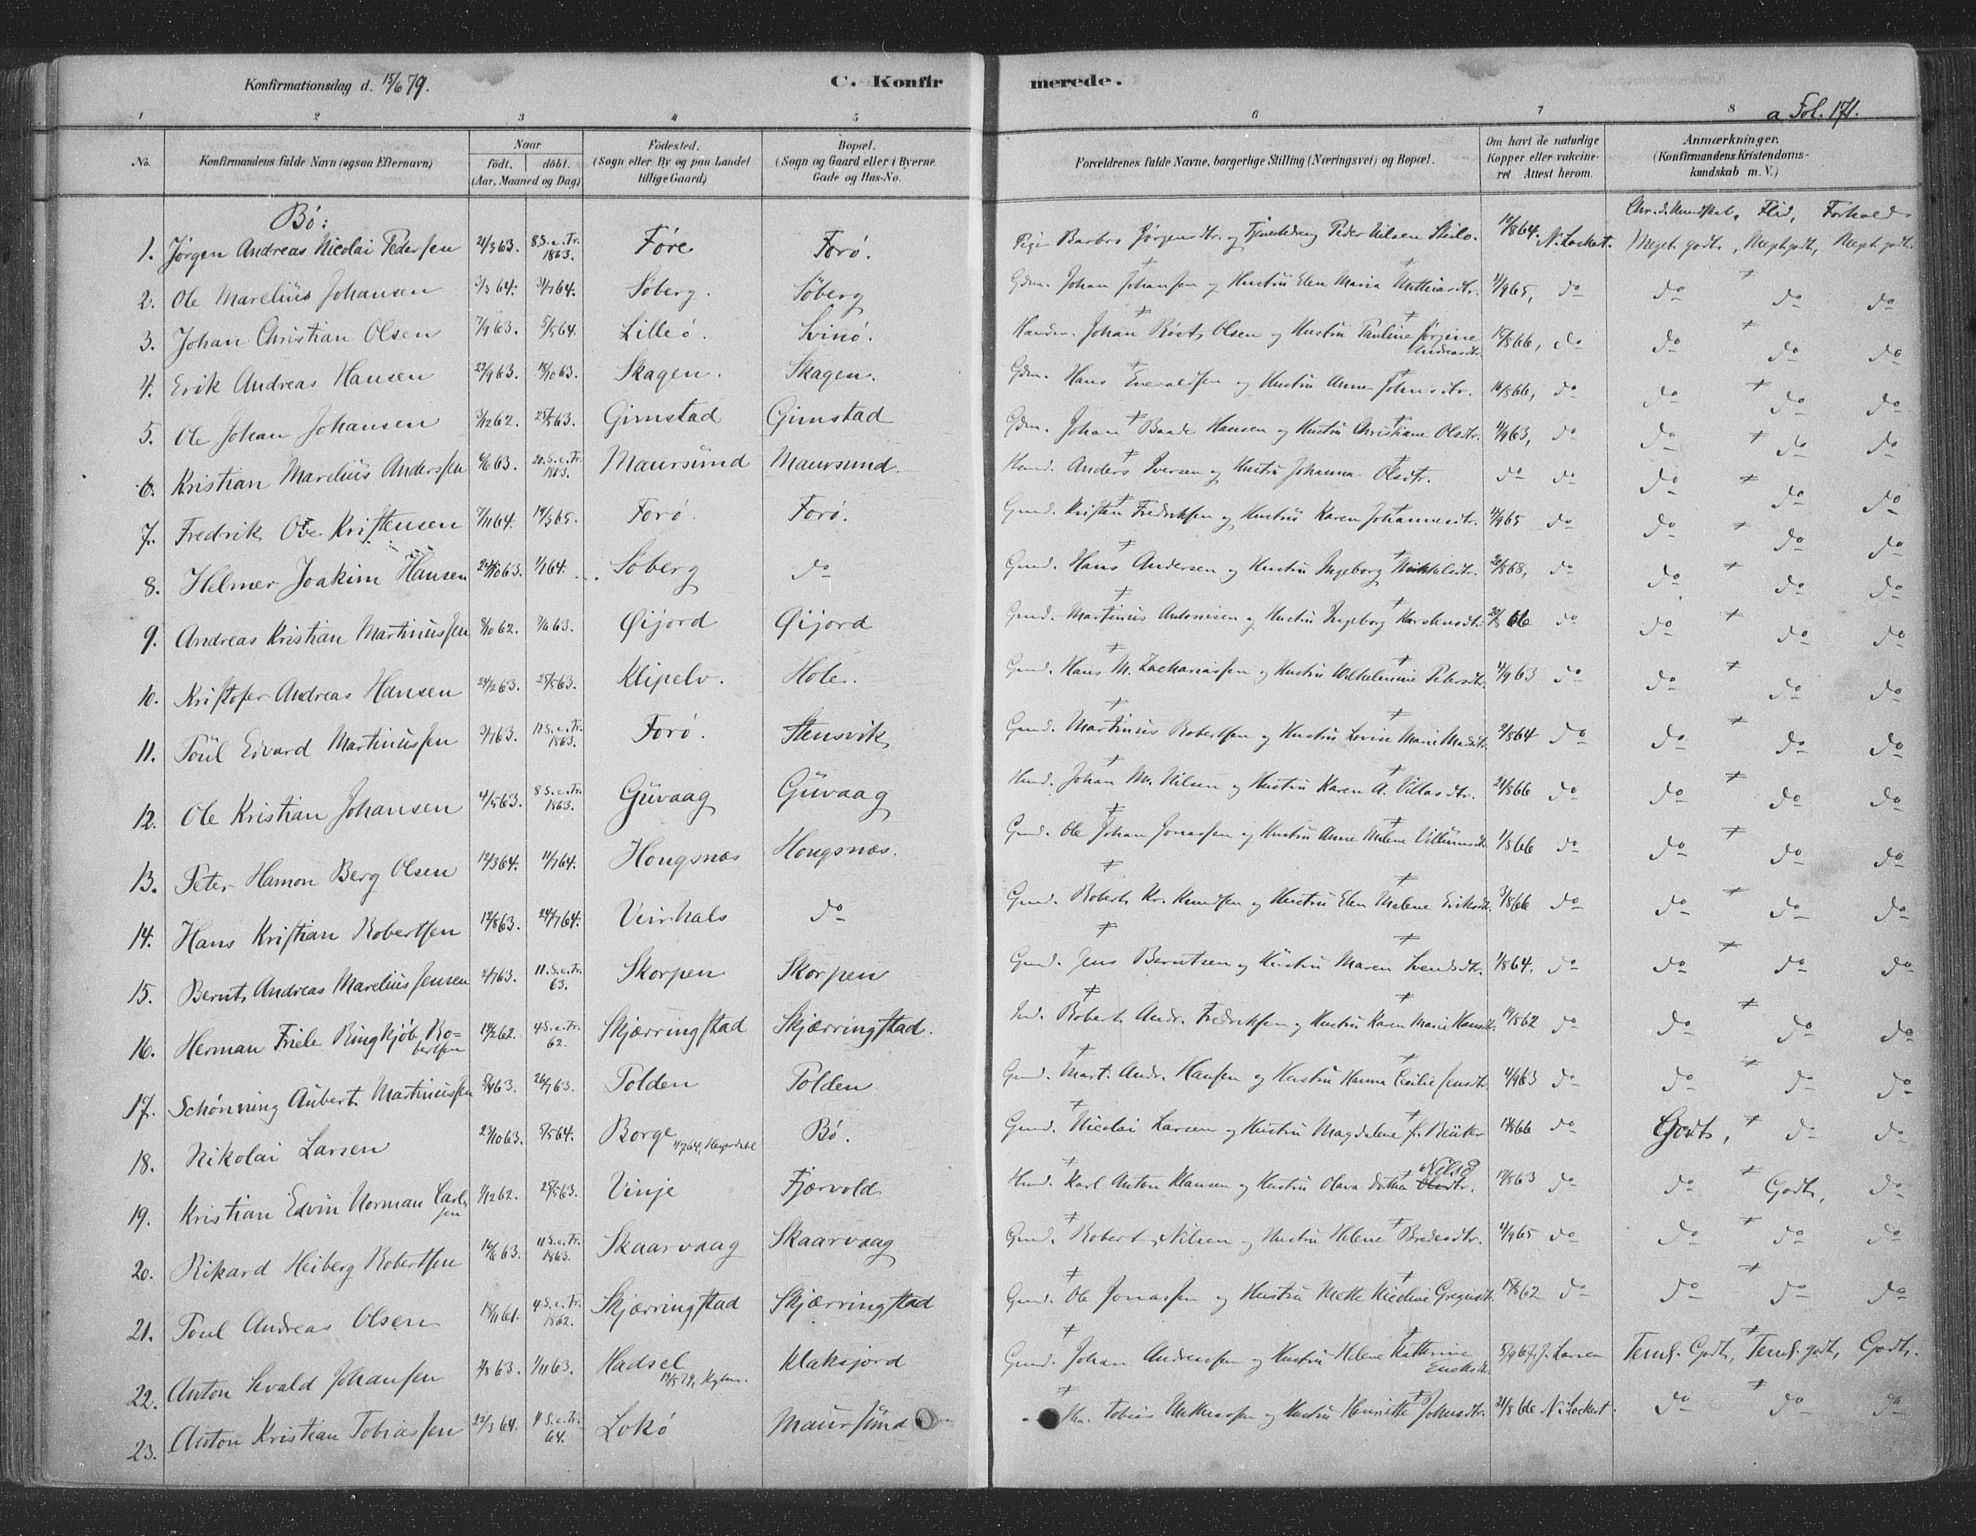 Konfirmationsdag d. 15/6 79.
C. Konfirmerede.
a Fol. 171.
1 2 3 4 5 6 7 8
No.
Konfirmandens fulde Navn (ogsaa Efternavn)
Naar
født. døbt.
(Aar, Maaned og Dag)
Födested.
(Sogn eller By og paa Landet tillige Gaard)
Bopæl.
(Sogn og Gaard eller i Byerne Gade og Hus-No.
Forældrenes fulde Navne, borgerlige Stilling (Næringsvei) og Bopæl.
Om havt de naturlige Kopper eller vakcineret Attest herom.
Anmærkninger.
(Konfirmandens Kristendomskundskab m. V.)
Bø:
Flid, Forhold
1. Jørgen Andreas Nicolai Pedersen 21/3 63. 8. S. e. Tr. 1863. Føre Forø. Pige Barbro Jørgensdtr. og Peder Nilsen 10/8 64. N. Lockert. Meget godt, Meget godt, Meget godt.
2. Ole Marelius Johansen 3/3 64. 31/7 64. Søberg. Søberg Gdm. Johan Johansen og Hustru Elen Maria Mathiasdtr. 4/9 65, do do do do
3. Johan Christian Olsen 7/9 63. 5/5 64. Lilleø. Svinø. Johan Røst Olsen og Hustru Pauline Jørgine Andreasdtr. 15/8 66, do do do do
4. Erik Andreas Hansen 22/9 63. 18/10 63. Skagen. Skagen. Gdm. Hans og Hustru Anne Johnsdtr. 14/8 66, do do do do
5. Ole Johan Johansen 3/12 62. 25/5 63. Gimstad Gimstad Gdm. Johan Baade Hansen og Hustru Christiane Olsdtr. 4/9 63, do do do do
6. Kristian Marelius Anderssen 4/6 63. 20. S. e. Tr. 1863. Maursund Maursund. Anders Iversen og Hustru Johanna Olsdtr. do do do do do
7. Fredrik Ove Kristensen 2/11 64. 19/3 65. Forø. Forø. Gmd. Kristen Fredriksen og Hustru Karen Johannesdtr. 4/9 65 do do do do
8. Helmer Joakim Hansen 24/10 63. 1/1 64. Søberg do Gmd. Hans Andersen og Hustru Ingeborg 21/8 68, do do do do
9. Andreas Kristian Martinussen 8/10 62. 7/6 63. Øijord Øijord Gmd. Martinus Antonisen og Hustru Ingeborg 20/8 66 do do do do
10. Kristofer Andreas Hansen 24/2 63. 25/5 63. Klipelv. Hole. Gmd. Hans M. Zachariassen og Hustru Wilhelmine Petersdtr. 4/9 63 do do do do
11. Poul Edvard Martinussen 3/7 63. 11 S. e. Tr. 1863. Forø. Stensvik Gmd. Martinus Robertsen og Hustru Lovise Marie Madsdtr. 2/8 64 do do do do
12. Ole Kristian Johansen 4/5 63. 8 S. e. Tr. 1863. Guvaag Guvaag Johan M. Nilsen og Hustru Karen A. 21/8 66 do do do do
13. Peter Hamon Berg Olsen 12/3 64. 11/7 64. Hougsnæs Hougsnæs. Gmd. Ole Johan Jonassen og Hustru Anne Malene Villumsdtr. 1/8 66 do do do do
14. Hans Kristian Robertsen 12/8 63. 24/7 64. Veirhals do Gmd. Robert Kr. Knudsen og Hustru Elen Malene Eriksdtr. 3/8 66 do do do do
15. Bernt Andreas Marelius Jensen 2/7 63. 11. S. e. Tr. 63. Skorpen Skorpen Gmd. Jens Berntsen og Hustru Maren Svendsdtr. 1/8 64. do do do do
16. Herman Friele Ringkjøb Robertsen 14/2 62. 4 S. e. Tr. 62. Skjærringstad Skjærringstad. Ind. Robert Andr. Fredriksen og Hustru Karen Marie Hansdtr. 14/8 62 do do do do
17. Schønning Aubert Martinussen 5/4 63. 26/7 63. Tolden Tolden Gmd. Mart. Andr. Hansen og Hustru Hanna Cecilie Jensdtr. 4/9 63 do do do do
18. Nikolai Larsen 27/10 63. 8/5 64. Borge Bø. Gmd. Nicolai Larsen og Hustru Magdelene f. 17/8 66 do Godt, do do
19. Kristian Edvin Norman Carlsen 1/12 62. 25/5 63. Vinje Fjærvold Karl Anton Klausen og Hustru Olava Nilsd 17/8 63 do do Godt, do
20. Rikard Heiberg Robertsen 16/6 63. 11 S. e. Tr. 1863. Skaarvaag Skaarvaag Gmd. Robert Nilsen og Hustru Helene Bredesdtr. 4/9 65 do do do do
21. Poul Andreas Olsen 18/11 61. 4 S. e. Tr. 1862. Skjærringstad Skjærringstad Gmd. Ole Jonassen og Hustru Mette Nicoline Gregusdtr. 15/8 62 do do do do
22. Anton Sevald Johansen 2/8 63. 1/11 63. Hadsel Klaksjord Gmd. Johan Andreassen og Hustru Helene Kathrine 5/9 67 J. Larsen Teml. Godt, Teml. godt, Godt.
23. Anton Kristian Tobiassen 22/3 64. 4 S. e. Tr. 64. Lokø Maursund Tobias Mathiassen og Hustru Henriette Johnsdtr. 21/8 66 N. Lockert. do do do